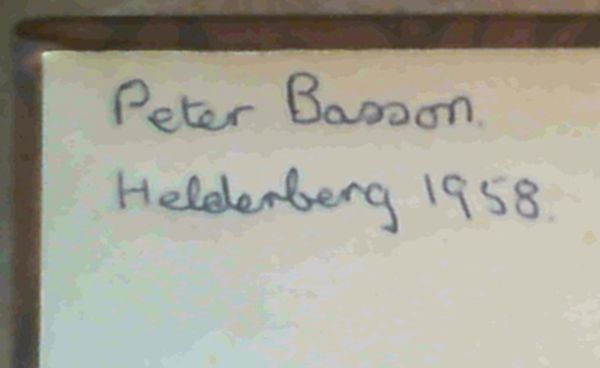 Peter Basson.
Helderberg 1958.